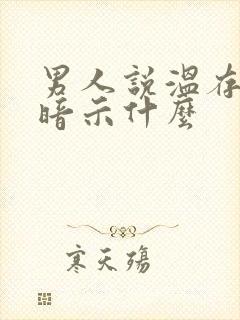 男人說溫存
暗示什麼
寒天殤